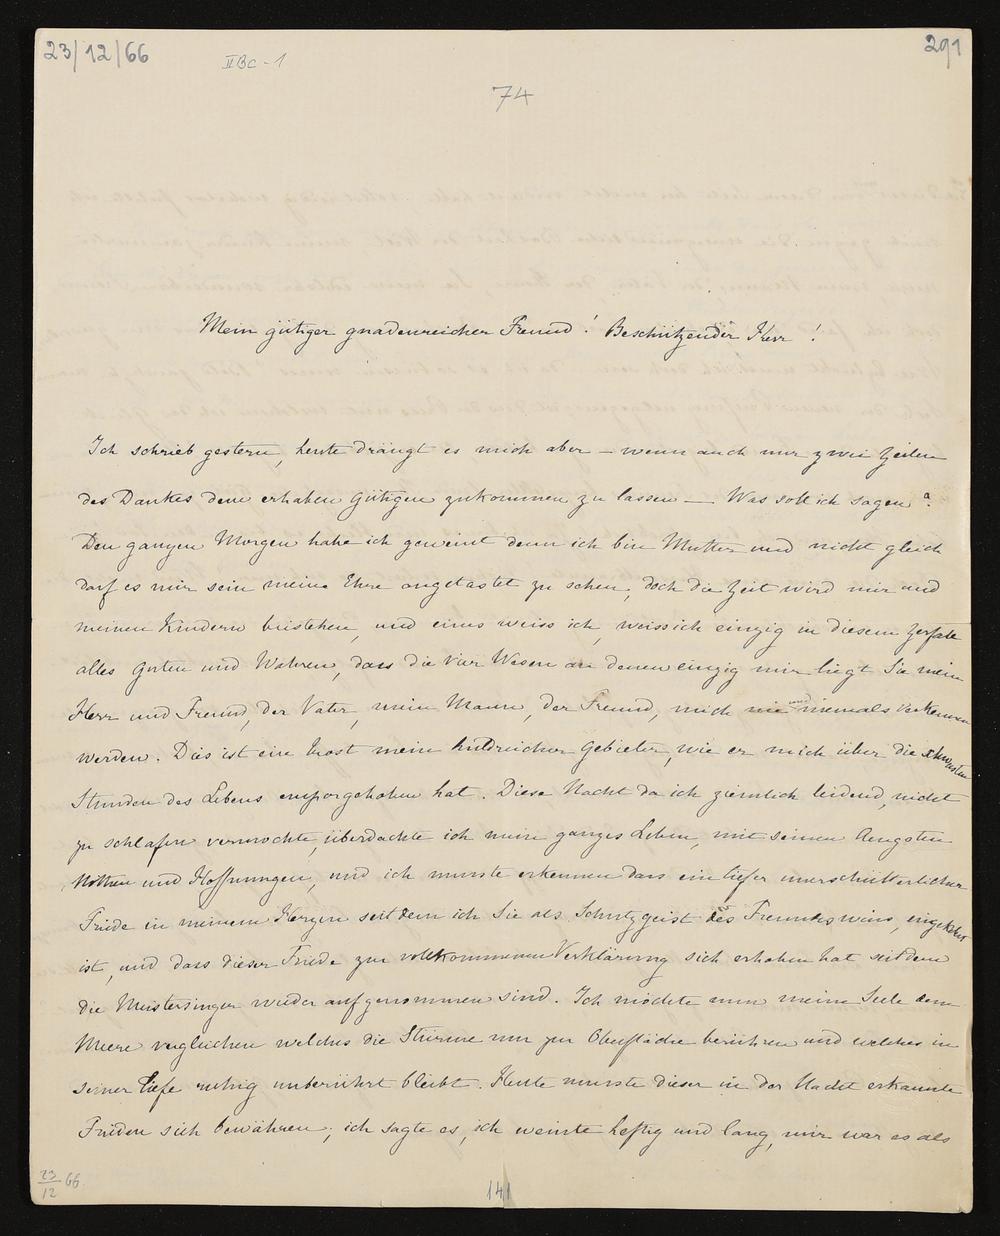 23/12/66
II Bc - 1
291
74
Mein gütiger gnadenreicher Freund! Beschützender Herr!
Ich schrieb gestern, heute drängt es mich aber – wenn auch nur zwei Zeilen
des Dankes dem erhaben Gütigen zukommen zu lassen — Was soll ich sagen?
Den ganzen Morgen habe ich geweint denn ich bin Mutter und nicht gleich
darf es mir sein meine Ehre angetastet zu sehen, doch die Zeit wird mir und
meinen Kindern beistehen, und eines weiss ich, weiss ich einzig in diesem Zerfall
alles Guten und Wahren, dass die vier Wesen an denen einzig mir liegt Sie mein
Herr und Freund, der Vater, mein Mann, der Freund, mich nie und niemals verkennen
werden. Dies ist ein Trost mein huldreicher Gebieter, wie er mich über die schwersten
Stunden des Lebens emporgehoben hat. Diese Nacht da ich ziemlich leidend, nicht
zu schlafen vermochte, überdachte ich mein ganzes Leben, mit seinen Aengsten
Nöthen und Hoffnungen, und ich musste erkennen dass ein tiefer unerschütterlicher
Friede in meinem Herzen seit dem ich Sie als Schutzgeist des Freundes weiss, eingekehrt
ist, und dass dieser Friede zur vollkommenen Verklärung sich erhoben hat seitdem
die Meistersinger wieder aufgenommen sind. Ich möchte nun meine Seele dem
Meere vergleichen welches die Stürme nur zur Oberfläche berühren und welches in
seiner Tiefe ruhig unberührt bleibt. Heute musste dieser in der Nacht erkannte
Frieden sich bewähren; ich sagte es, ich weinte heftig und lang, mir war es als
23/12 66
141